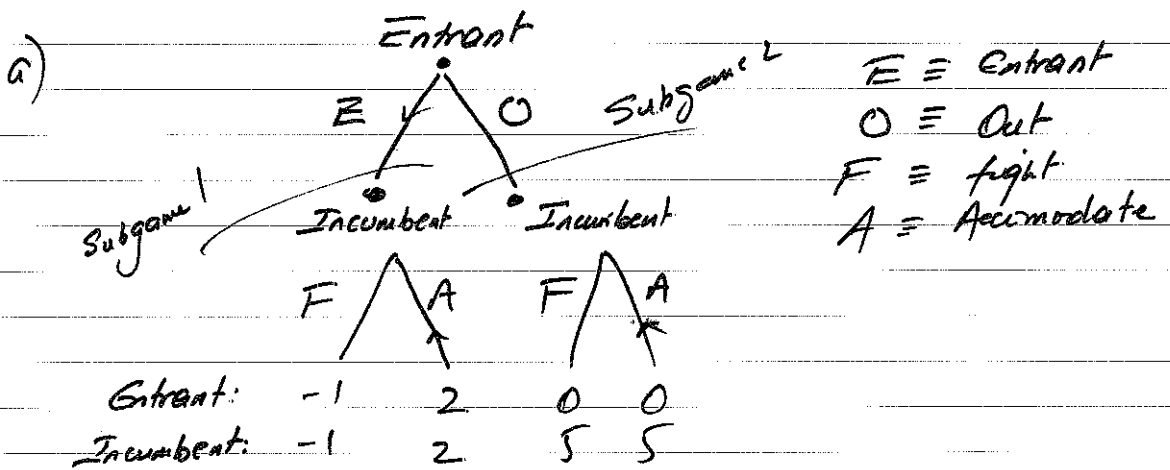 a)
Entrant
E O
Subgame 1
Subgame 2
Incumbent Incumbent
F A F A
Entrant: -1 2 0 0
Incumbent: -1 2 5 5
E ≡ Entrant
O ≡ Out
F ≡ fight
A ≡ Accimodate